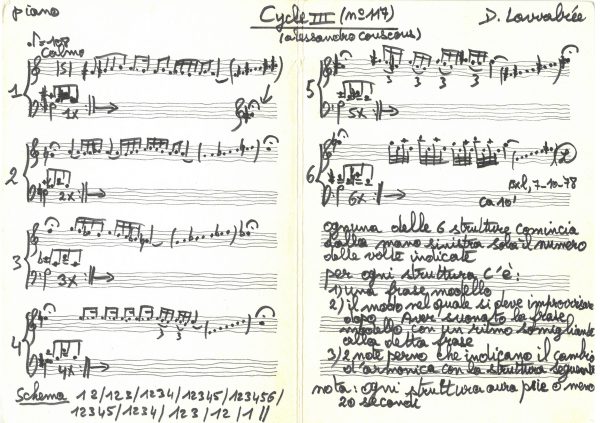 piano
Cycle III (nº 117)
(alessandro couscous)
D. Lorrabrée
♪=108
Calmo
1
1x
2
2x
3
3x
4
4x
5
3 3 3 3
5x
6
6x
Bxl, 7-10-78
ca 10'
Schema 12/123/1234/12345/123456/
12345/1234/123/12/1//
ognuna delle 6 strutture comincia
dalla mano sinistra sola il numero
delle volte indicate
per ogni struttura c'è:
1) una frase modello
2) il modo nel quale si deve improvvisare
dopo aver suonato la frase
modello con un ritmo somigliante
alla detta frase
3) 2 note perno che indicano il cambio
d'armonica con la struttura seguente
nota: ogni struttura aura più o meno
20 secondi